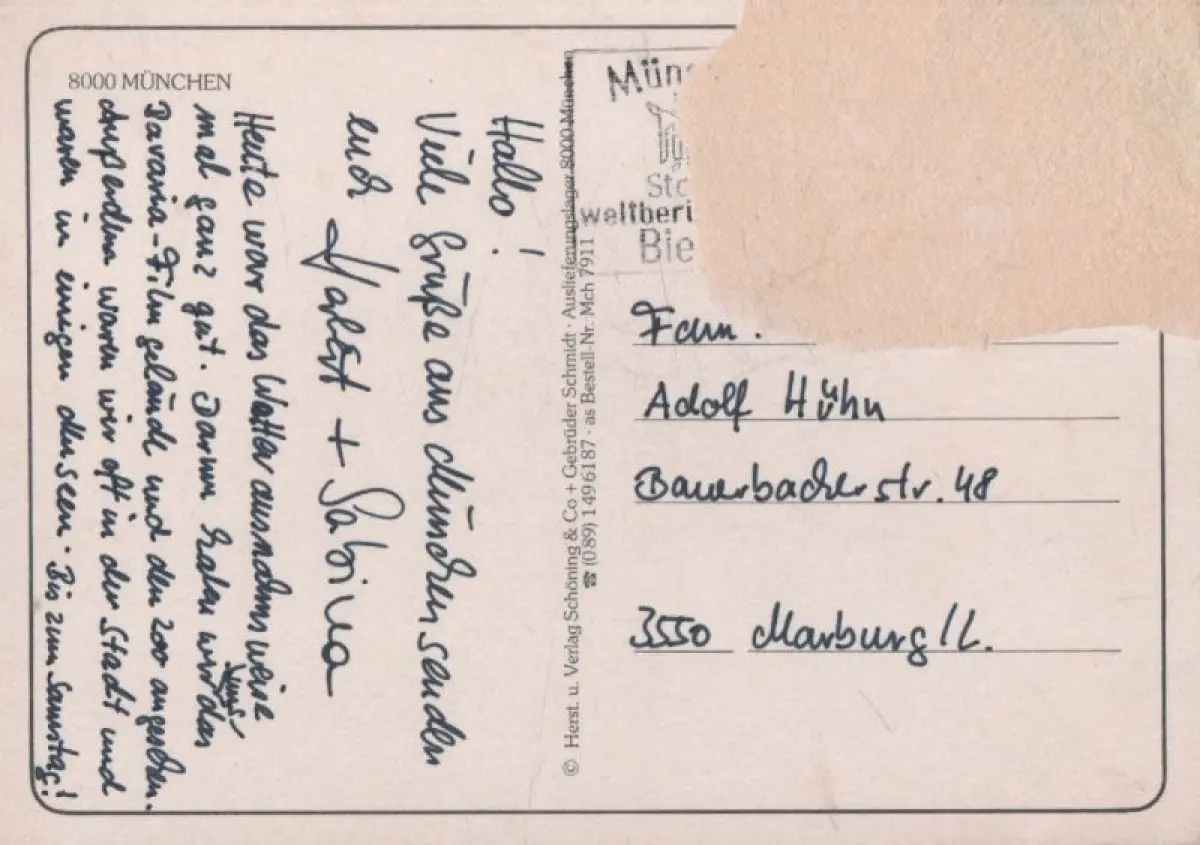 8000 MÜNCHEN
Hallo!
Viele Grüße aus München senden
euch
+ Sabina
Heute war das Wetter ausnahmsweise
mal ganz gut. Darum haben wir uns das
Bavaria-Filmgelände und den Zoo angesehen.
Außerdem waren wir oft in der Stadt und
waren in einigen Museen. Bis zum Samstag!
© Herst. u. Verlag Schöning & Co + Gebrüder Schmidt · Auslieferungslager 8000 München
☎ (089) 1496187 · as Bestell-Nr. Mch 7911
Mün
weltberü
Bie
Fam.
Adolf Hühn
Bauerbacherstr. 48
3550 Marburg/L.